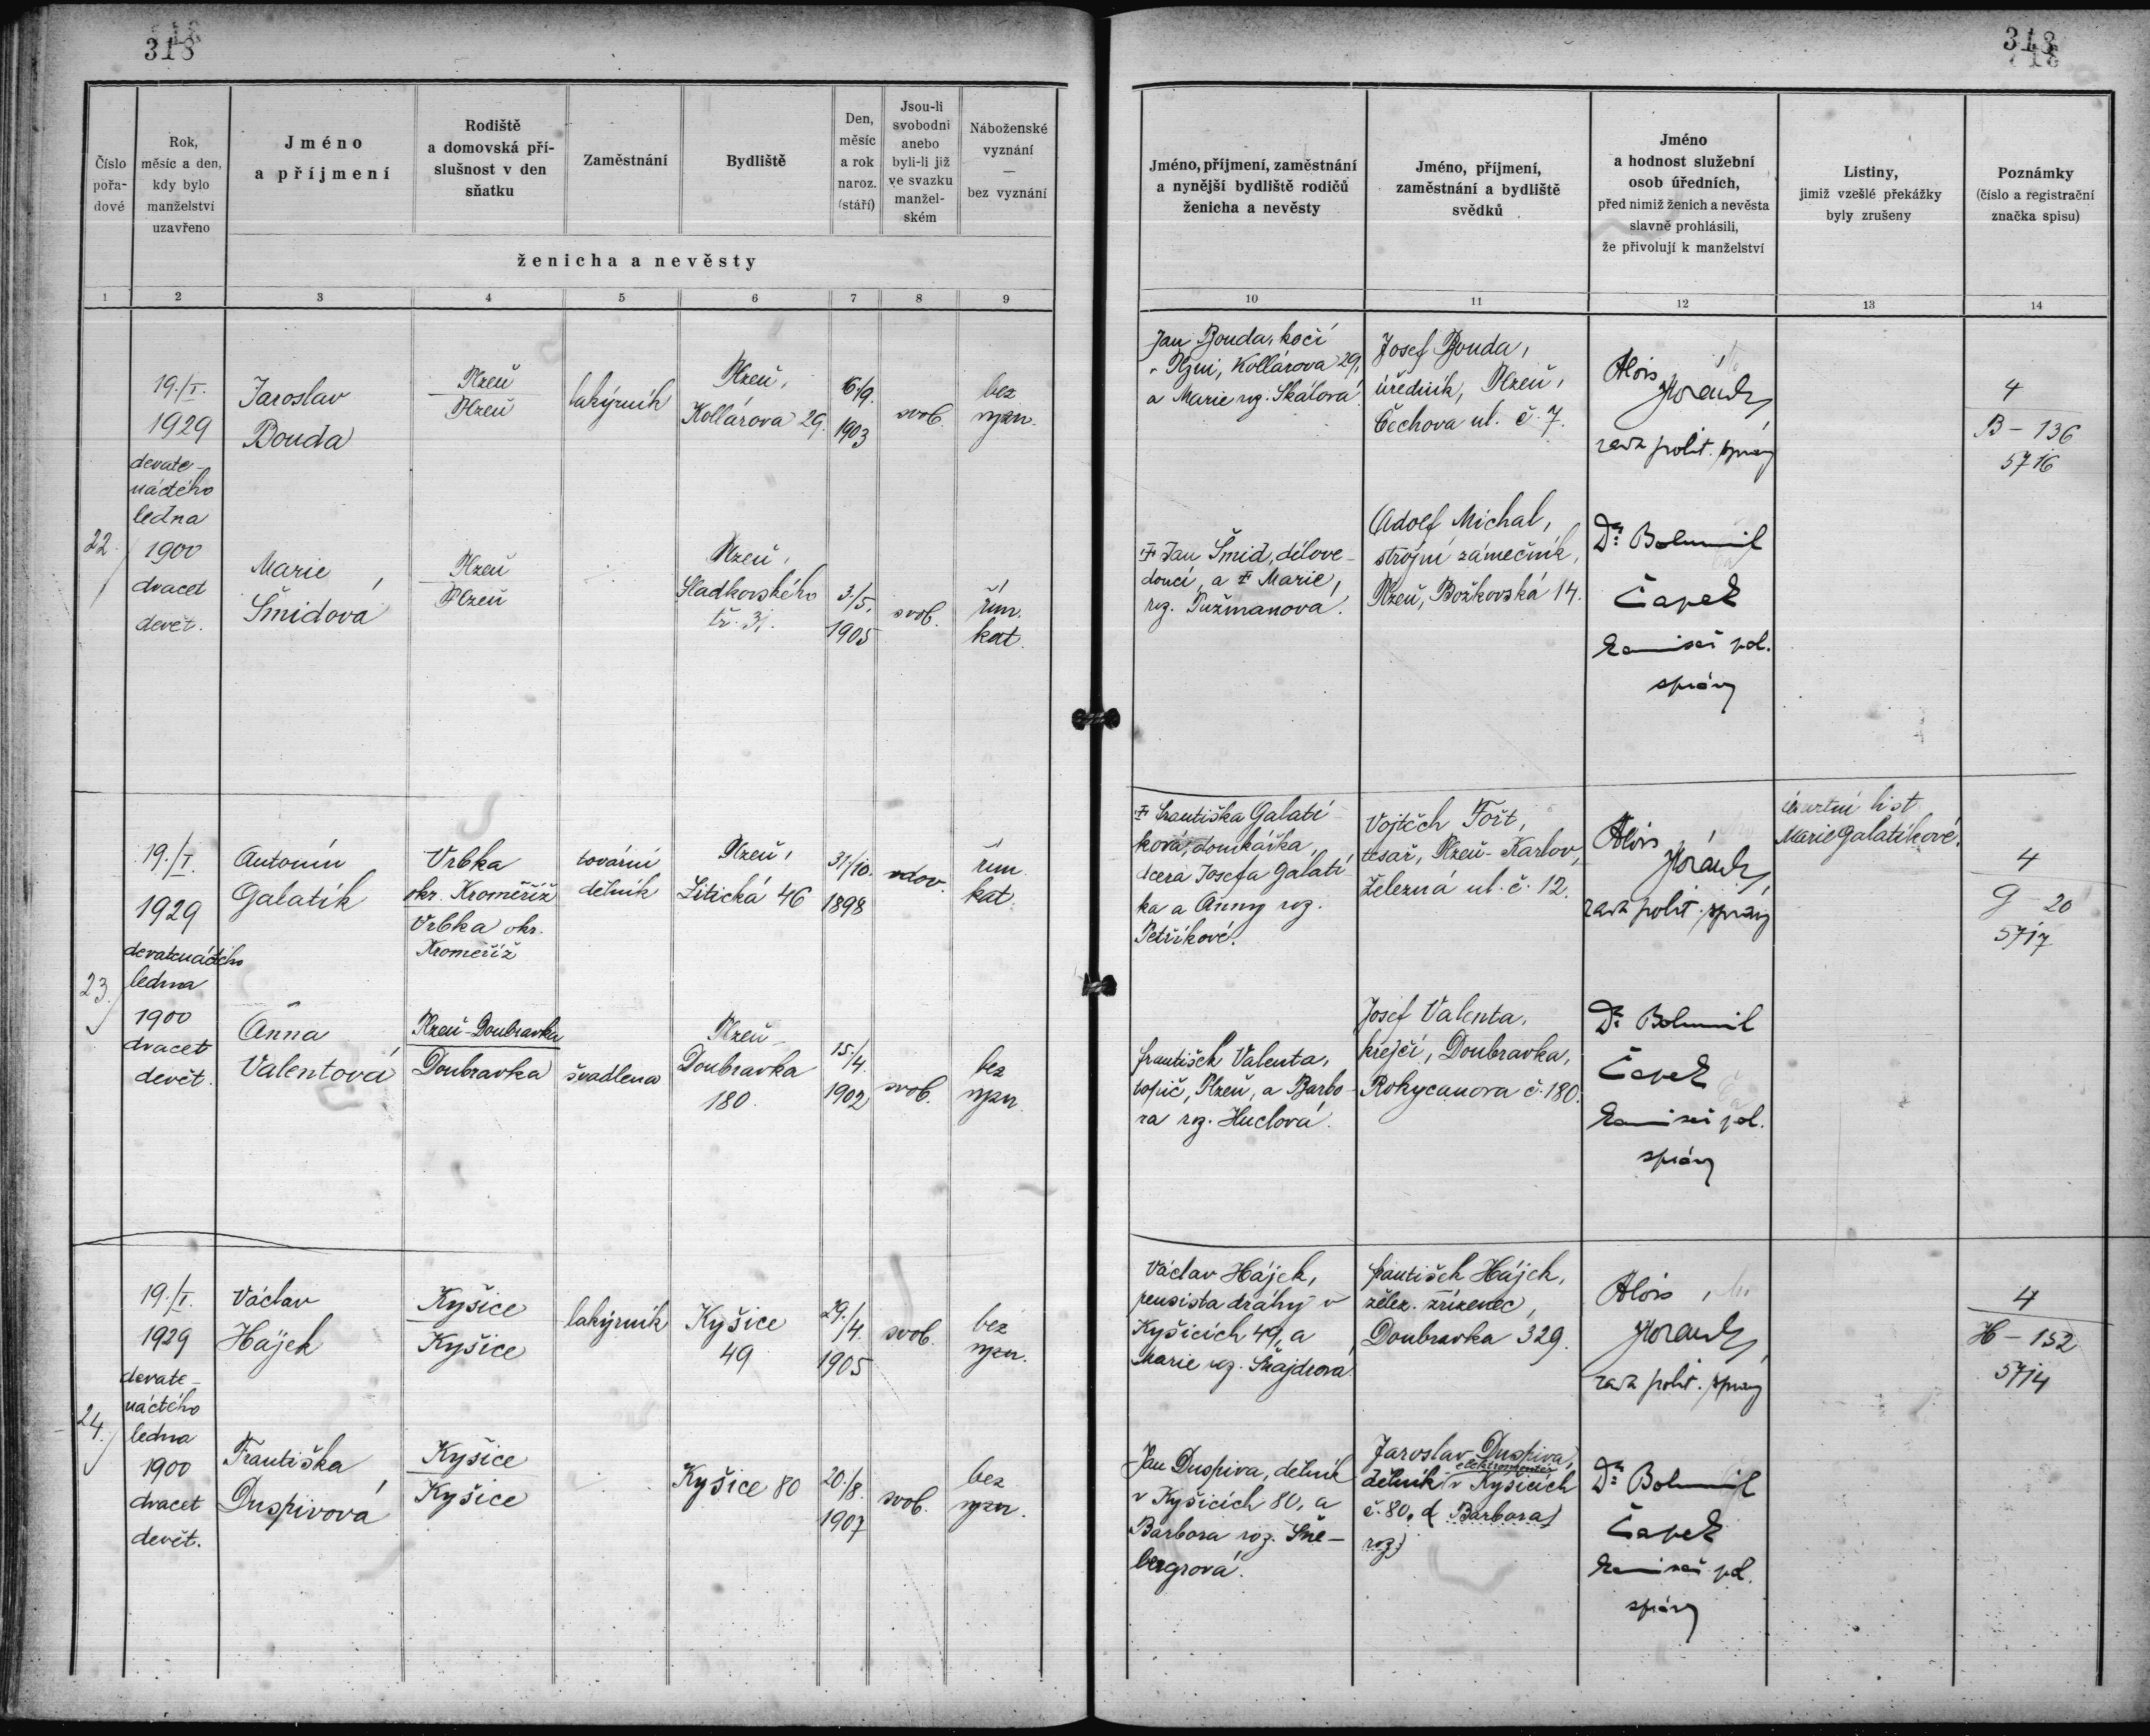 318
318
Číslo pořa- dové
Rok, měsíc a den, kdy bylo manželství uzavřeno
Jméno a příjmení
Rodiště a domovská pří- slušnost v den sňatku
Zaměstnání
Bydliště
Den, měsíc a rok naroz. (stáří)
Jsou-li svobodni anebo byli-li již ve svazku manžel- ském
Náboženské vyznání — bez vyznání
ženicha a nevěsty
Jméno, příjmení, zaměstnání a nynější bydliště rodičů ženicha a nevěsty
Jméno, příjmení, zaměstnání a bydliště svědků
Jméno a hodnost služební osob úředních, před nimiž ženich a nevěsta slavně prohlásili, že přivolují k manželství
Listiny, jimiž vzešlé překážky byly zrušeny
Poznámky (číslo a registrační značka spisu)
1 2 3 4 5 6 7 8 9 10 11 12 13 14
22.
19./I.
1929
devate-
náctého
ledna
1900
dvacet
devět.
Jaroslav
Bouda
Plzeň
Plzeň
lakýrník
Plzeň,
Kollárova 29.
6/9.
1903
svob.
bez
vyzn.
Jan Bouda, kočí
v Plzni, Kollárova 29,
a Marie roz. Skálová.
Josef Bouda,
úředník, Plzeň,
Čechova ul. č. 7.
Alois
rada polit. správy
4
B – 136
5716
Marie
Šmídová
Plzeň
Plzeň
Plzeň,
Sladkovského
tř. 31.
3./5.
1905
svob.
řím.
kat.
Jan Šmíd, dílove-
doucí, a Marie,
roz. Tužmanová.
Adolf Michal,
strojní zámečník,
Plzeň, Božkovská 14.
Dr. Bohumil
Čapek
komisař pol.
správy
23.
19./I.
1929
devatenáctého
ledna
1900
dvacet
devět.
Antonín
Galatík
Vrbka
okr. Kroměříž
Vrbka okr.
Kroměříž
tovární
dělník
Plzeň,
Litická 46
31./10.
1898
vdov.
řím.
kat.
Františka Galatí-
ková, domkářka,
dcera Josefa Galatí-
ka a Anny roz.
Petříkové.
Vojtěch Fořt,
tesař, Plzeň-Karlov,
Železná ul. č. 12.
Alois
rada polit. správy
úmrtní list
Marie Galatíkové.
4
G – 20
5717
Anna
Valentová
Plzeň-Doubravka
Doubravka
švadlena
Plzeň-
Doubravka
180.
15./4.
1902
svob.
bez
vyzn.
František Valenta,
topič, Plzeň, a Barbo-
ra roz. Huclová.
Josef Valenta,
krejčí, Doubravka,
Rokycanova č. 180.
Dr. Bohumil
Čapek
komisař pol.
správy
24.
19./I.
1929
devate-
náctého
ledna
1900
dvacet
devět.
Václav
Hájek
Kyšice
Kyšice
lakýrník
Kyšice
49
29./4.
1905
svob.
bez
vyzn.
Václav Hájek,
pensista dráhy v
Kyšicích 49, a
Marie roz. Šnajdrová.
František Hájek,
želez. zřízenec,
Doubravka 329.
Alois
rada polit. správy
4
H – 152
5714
Františka
Duspivová
Kyšice
Kyšice
Kyšice 80
20./8.
1907
svob.
bez
vyzn.
Jan Duspiva, dělník
v Kyšicích 80, a
Barbora roz. Šne-
bergrová.
Jaroslav Duspiva,
elektromontér
dělník v Kyšicích
č. 80, a Barbora
roz.
Dr. Bohumil
Čapek
komisař pol.
správy